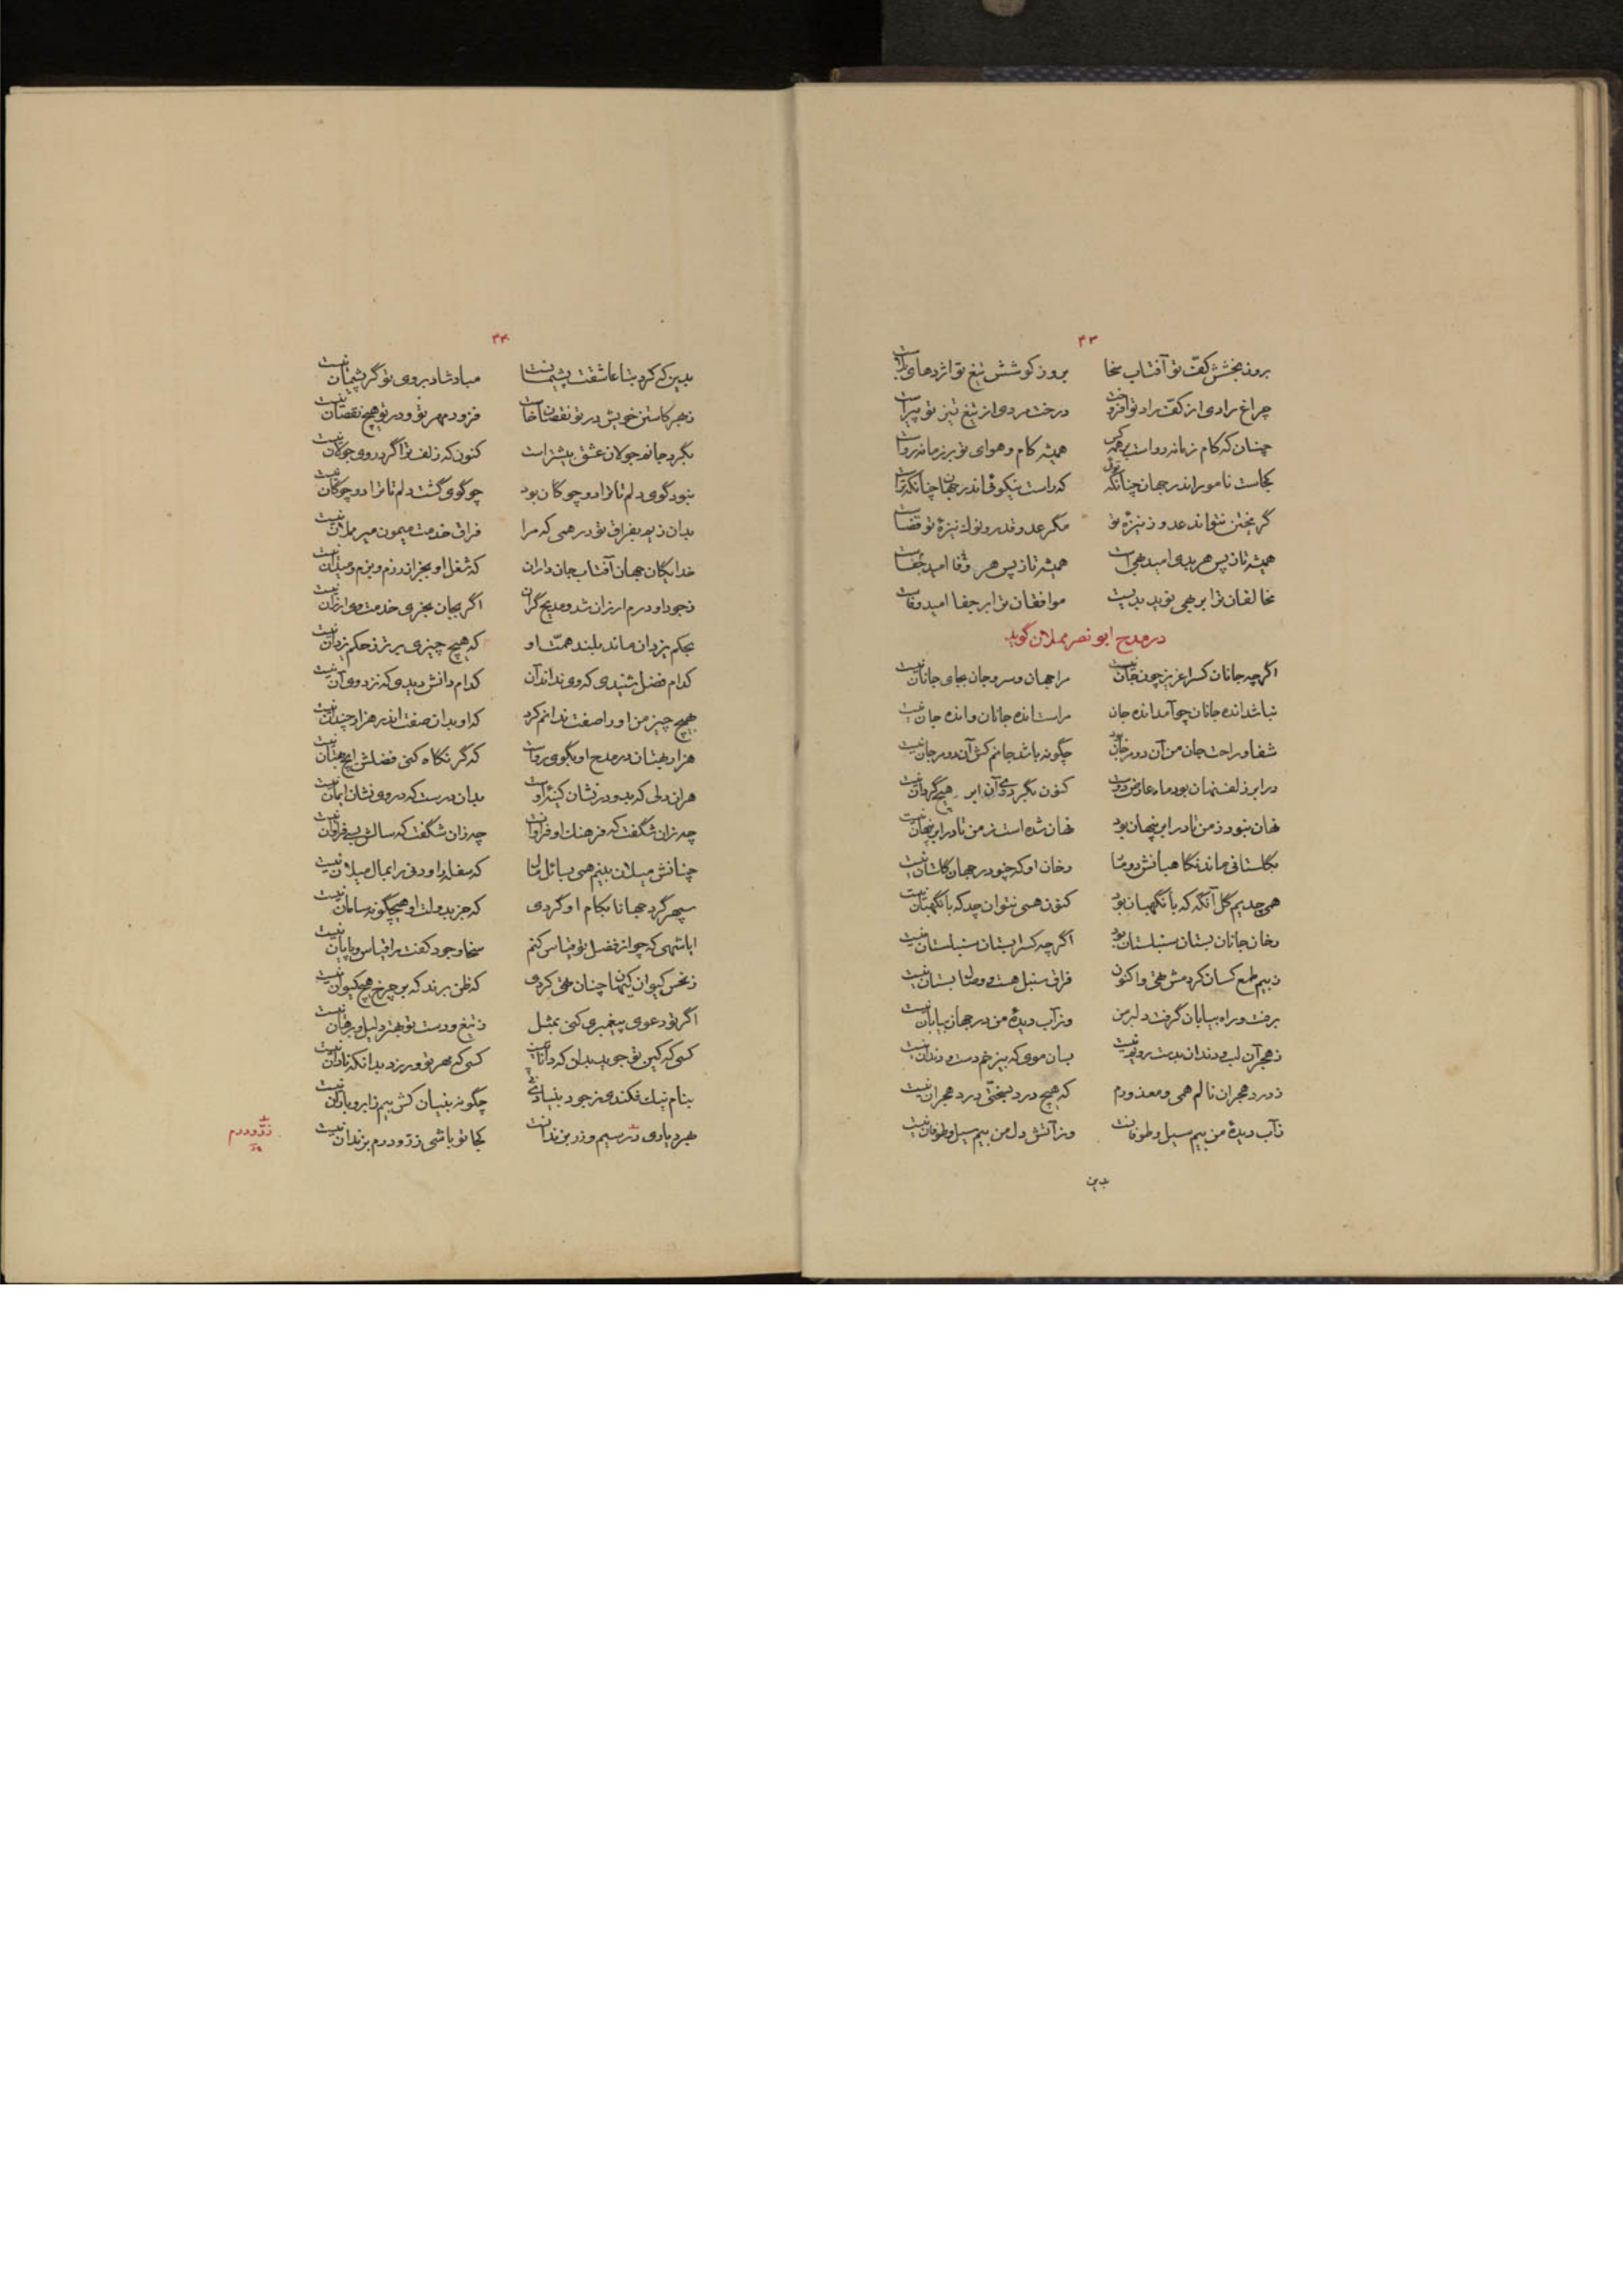 ۴۳
بروز بخشش کفّ تو آفتاب سخا بروز کوشش تیغ تو اژدهای بلاست
چراغ رادی از کفّ راد تو افروخت درخت مردی از تیغ تیز تو پیراست
چنان که کام زمانه رواست بر همه کس همیشه کام و هوای تو بر زمانه رواست
کجاست نامور اندر جهان چنانکه توئی که راست نیکوئی اندر جهان چنانکه تراست
گریختن نتواند عدو ز نیزهٔ تو مگر عدو قدر و نوک نیزهٔ تو قضاست
همیشه تا ز پس هر بدی امید بهی است همیشه تا ز پس هر وفا امید جفاست
مخالفان ترا بر بهی نوید بدیست موافقان ترا بر جفا امید وفاست
در مدح ابو نصر مملان گوید
اگرچه جانان کس را عزیز چون جان نیست مرا جهان و سر و جان بجای جانان نیست
نباشد انده جانان چو آمد انده جان مراست انده جانان و انده جان نیست
شفا و راحت جان من آن دو رخان بود چگونه باشد جانم کش آن دو مرجان نیست
در ابر زلف نهان بود ماه عارض دوست کنون بگرد وی آن ابر هیچ گردان نیست
نهان نبود ز من تا در ابر پنهان بود نهان شده است ز من تا در ابر پنهان نیست
بگلستانی ماند نگاهبانش دو مار رخان او که چنو در جهان گلستان نیست
همی چدیم گل آنگه که با نگهبان بود کنون همی نتوان چد که با نگهبان نیست
رخان جانان بستان سنبلستان بود اگرچه کس را بستان سنبلستان نیست
ز بیم طمع کسان کردمش تهی و اکنون فراق سنبل هست و وصال بستان نیست
برفت و راه بیابان گرفت دلبر من وز آب دیدهٔ من در جهان بیابان نیست
ز هجر آن لب و دندان بدست روئی نیست بسان موی که بیزخم دست و دندان نیست
ز درد هجران نالم همی و معذورم که هیچ درد بسختی درد هجران نیست
ز آب دیدهٔ من بیم سیل و طوفانست وز آتش دل من بیم سیل و طوفان نیست
بدین
۴۴
بدین که کرد بتا عاشقت پشیمانست مباد شاد بروی تو گر پشیمان نیست
ز هجر کاستن خویش در تو نقصان خاست فزود مهر تو و در تو هیچ نقصان نیست
بگرد جانم جولان عشق بیشتر است کنون که زلف ترا گرد روی جولان نیست
نبود گوی دلم تا ترا دو چوگان بود چو گوی گشت دلم تا ترا دو چوگان نیست
بدان زیم بفراق تو در همی که مرا فراق خدمت میمون میر مملان نیست
خدایگان جهان آفتاب جان داران که شغل او بجز از رزم و بزم و میدان نیست
ز جود او درم ارزان شد و مدیح گران اگر بجان بخری خدمت وی ارزان نیست
بحکم یزدان ماند بلند همّت او که هیچ چیزی برتر ز حکم یزدان نیست
کدام فضل شنیدی که وی نداند آن کدام دانش دیدی که نزد وی آن نیست
بهیچ چیز من او را صفت ندانم کرد که او بدان صفت اندر هزار چندان نیست
هزار بهتان در مدح او بگوی رواست که گر نگاه کنی فضلش ایچ بهتان نیست
هران دلی که بدو در نشان کینهٔ اوست بدان درست که در وی نشان ایمان نیست
چه زان شگفت که فرهنگ او فراوانست چه زان شگفت که سالش بسی فراوان نیست
چنانش میلان بینم همی بسائل مال که سفله را و دنی را بمال میلان نیست
سپهر گرد جهانا بکام او گردی که جز بدولت او هیچگونه سامان نیست
ایا شهی که چو از فضل تو قیاس کنم سخا و جود کفت را قیاس و پایان نیست
ز نحس کیوان کیهان چنان تهی کردی که ظن برند که بر چرخ هیچ کیوان نیست
اگر تو دعوی پیغمبری کنی بمثل ز تیغ و دست تو بهتر دلیل و برهان نیست
کسی که کین تو جوید بدان که دانا نیست کسی که مهر تو ورزد بدانکه نادان نیست
بنام نیک فکندی ز جود بنیادی چگونه بنیان کش بیم ز ابر و باران نیست
بهر دیاری در سیم و زر بزندانست کجا تو باشی زرّ و درم بزندان نیست
زرّ و درم